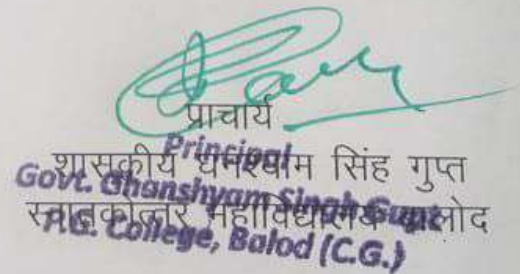 प्राचार्य
Principal
शासकीय घनश्याम सिंह गुप्त
Govt. Ghanshyam Singh Gupt
स्नातकोत्तर महाविद्यालय बालोद
P.G. College, Balod (C.G.)